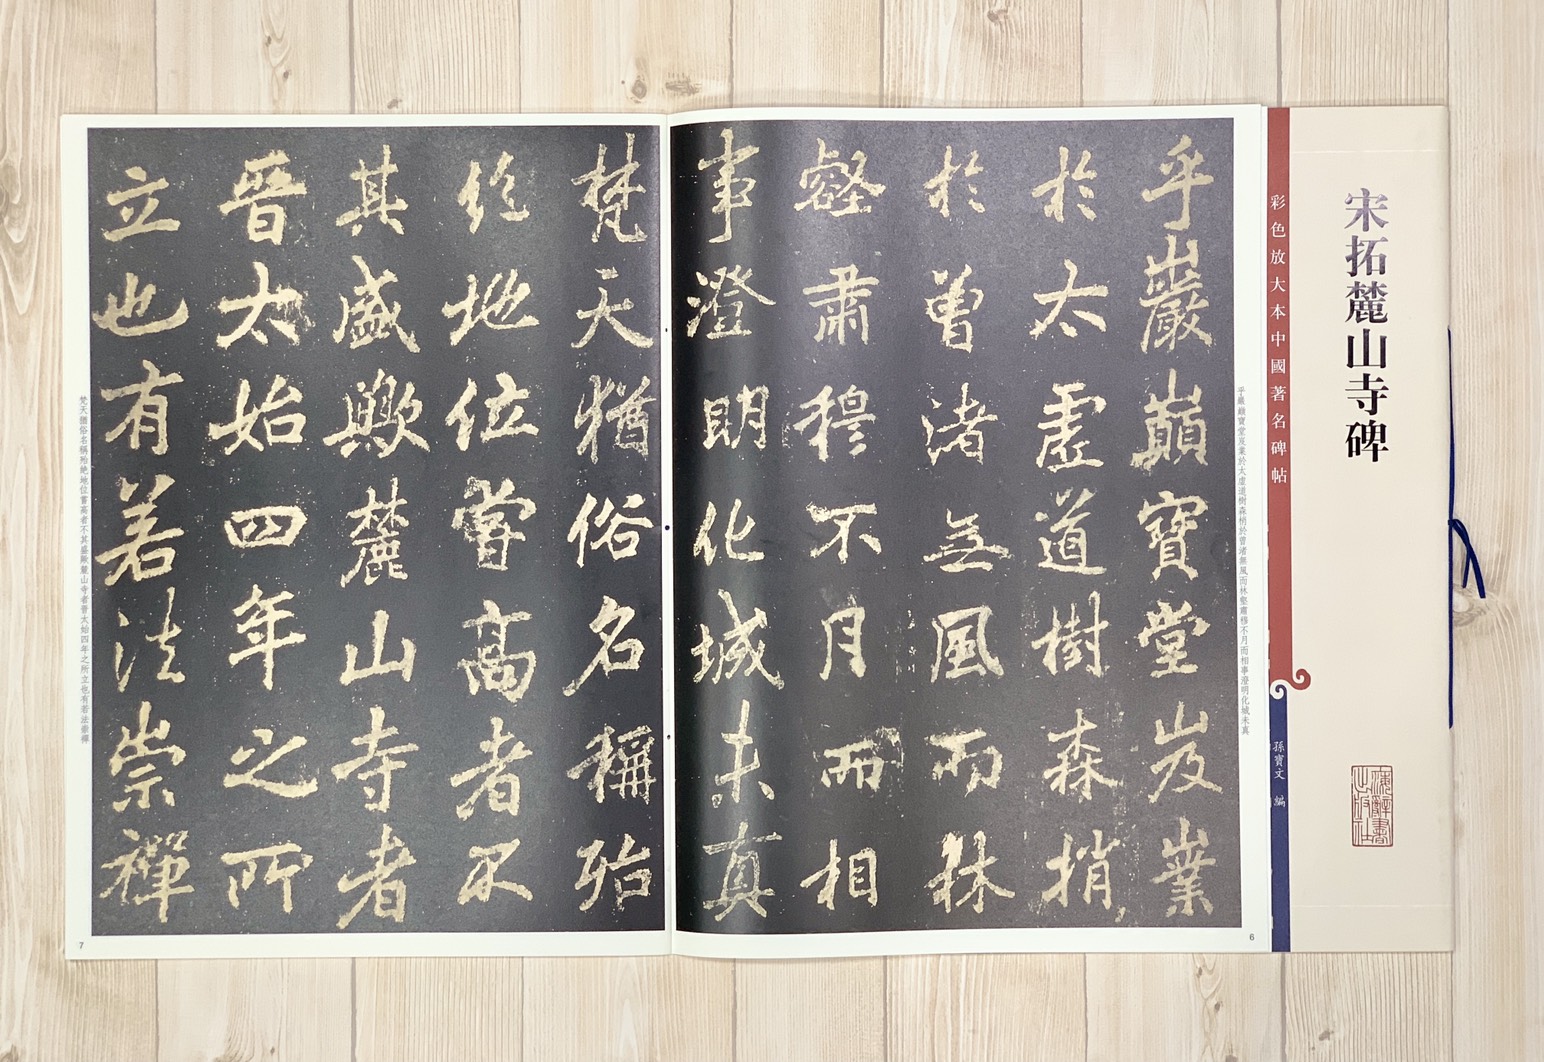 宋拓麓山寺碑
彩色放大本中國著名碑帖
孫寶文 編
乎巖巔寶堂岌業於太虛道樹森梢於曾渚無風而林壑肅穆不月而相事澄明化城未真
乎巖巔寶堂岌業
於太虛道樹森捎
於曾渚無風而林
壑肅穆不月而相
事澄明化城未真
6
梵天猶俗名稱殆
絶地位嘗高者不
其盛歟麓山寺者
晉太始四年之所
立也有若法崇禪
梵天猶俗名稱殆絶地位嘗高者不其盛歟麓山寺者晉太始四年之所立也有若法崇禪
7